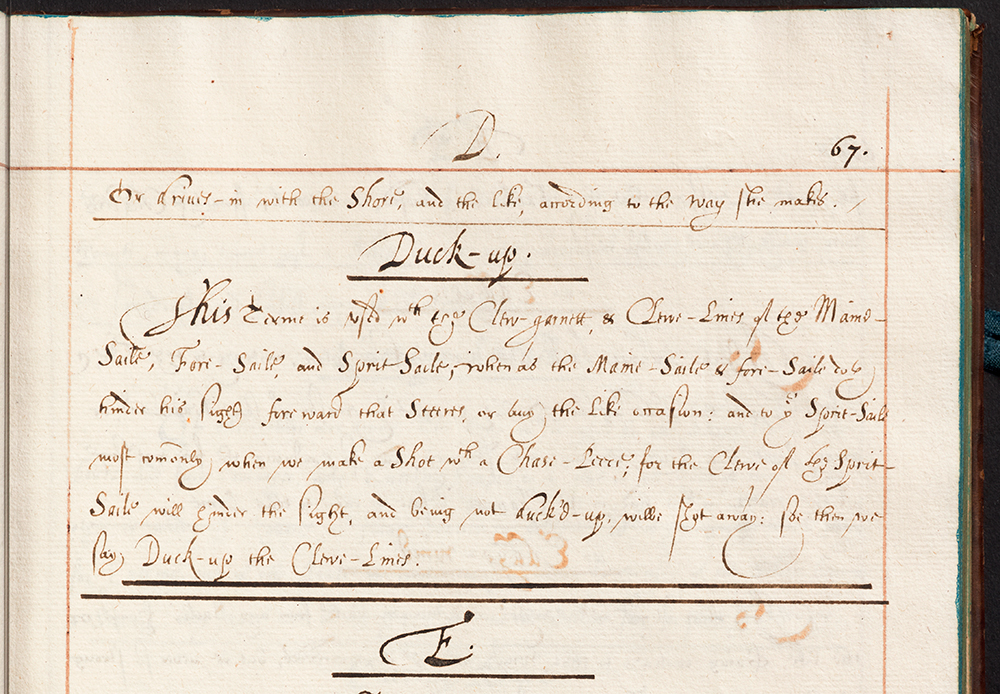 D.
67.
Or drives-in with the Shore, and the like, according to the way she makes.
Duck-up.
This Terme is used wth the Clew-garnett, & Clewe-Lines of the Maine-
Saile, Fore-Saile, and Sprit-Saile; when as the Maine-Saile & fore-Saile doe
hinder his sight foreward that Steeres, or any the like occasion: and to ye Sprit-Saile
most commonly when we make a Shot wth a Chase-Peece; for the Clewe of the Sprit-
Saile will hinder the sight, and being not duck'd-up, wilbe shot away: soe then we
say Duck-up the Clewe-Lines.
E.